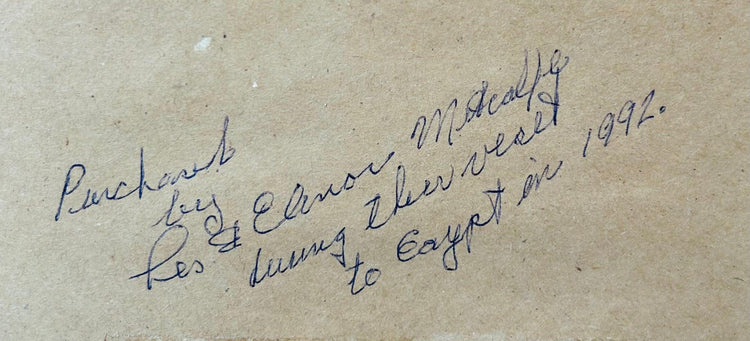 Purchased
by
Les & Elanor Metcalfe
during their visit
to Egypt in 1992.